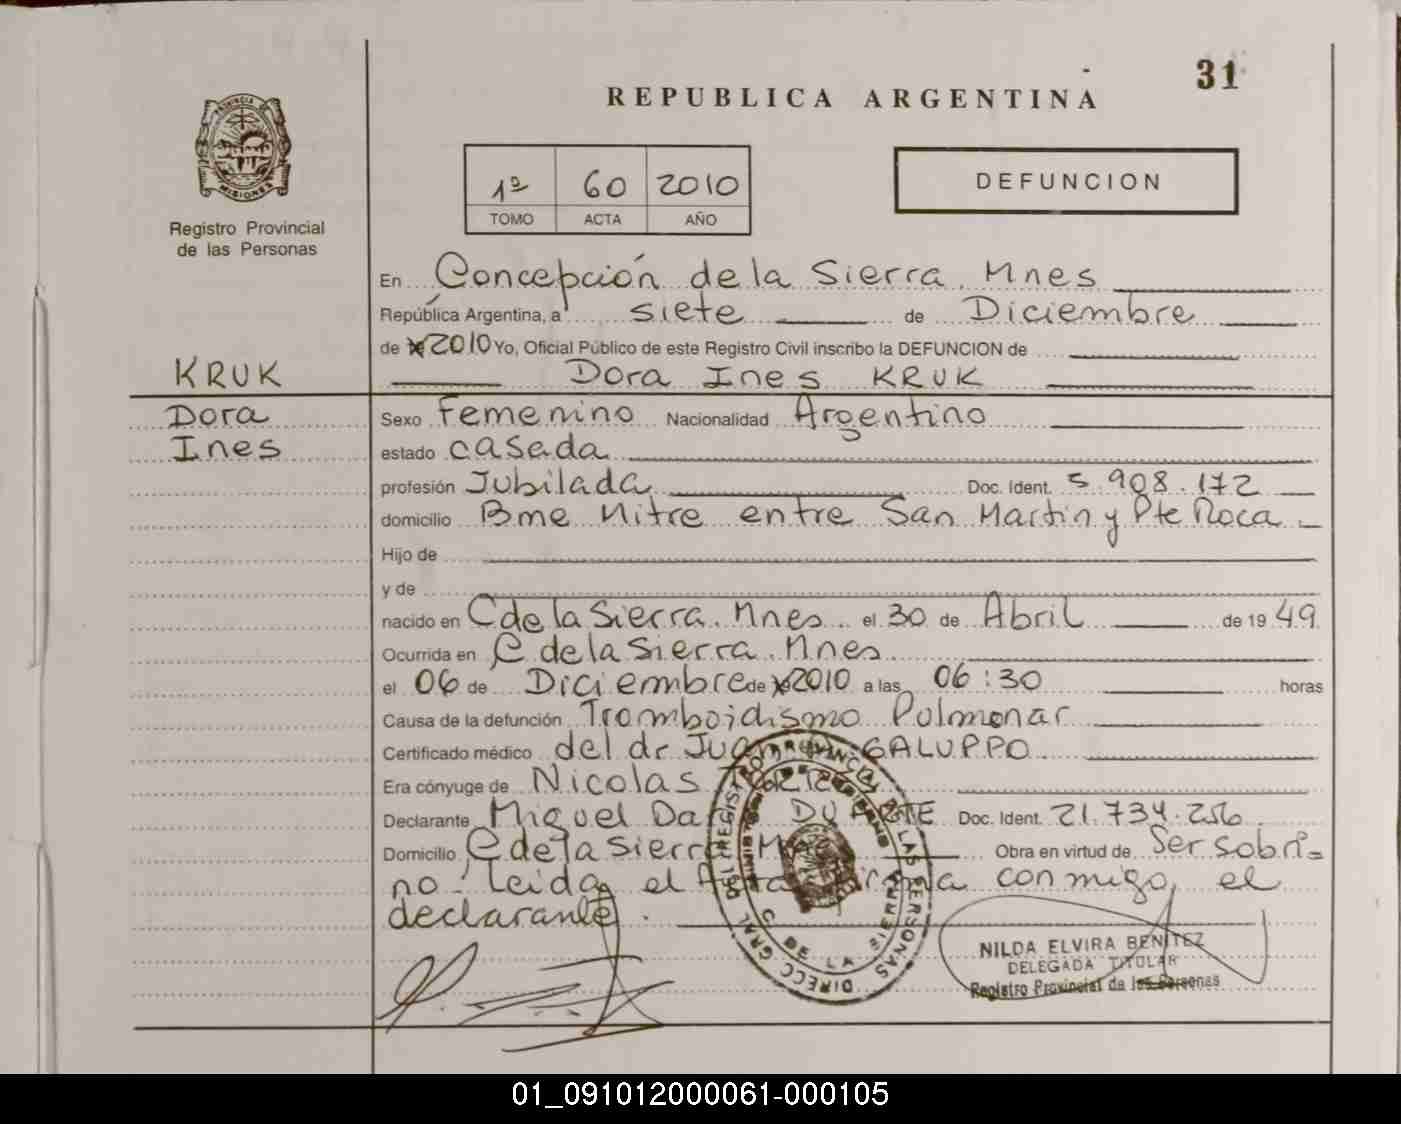 31
REPUBLICA ARGENTINA
PROVINCIA DE
MISIONES
Registro Provincial
de las Personas
1º 60 2010
TOMO ACTA AÑO
DEFUNCION
En Concepción de la Sierra. Mnes
República Argentina, a siete de Diciembre
de 2010 Yo, Oficial Público de este Registro Civil inscribo la DEFUNCION de
KRUK
Dora Ines KRUK
Dora
Ines
Sexo Femenino Nacionalidad Argentino
estado casada
profesión Jubilada Doc. Ident. 5.908.172
domicilio Bme Mitre entre San Martin y Pte Roca
Hijo de
y de
nacido en C de la Sierra. Mnes. el 30 de Abril de 1949.
Ocurrida en C de la Sierra. Mnes
el 06 de Diciembre de 2010 a las 06:30 horas
Causa de la defunción Tromboidismo Pulmonar
Certificado médico del dr Juan GALUPPO
Era cónyuge de Nicolas
Declarante Miguel DUARTE Doc. Ident. 21.734.256
Domicilio C de la Sierra Obra en virtud de Ser sobri=
no. Leida el Acta firma conmigo, el
declarante.
DIRECC. GRAL DEL REGISTRO PROVINCIAL DE LAS PERSONAS
C. DE LA SIERRA
NILDA ELVIRA BENITEZ
DELEGADA TITULAR
Registro Provincial de las Personas
01_091012000061-000105